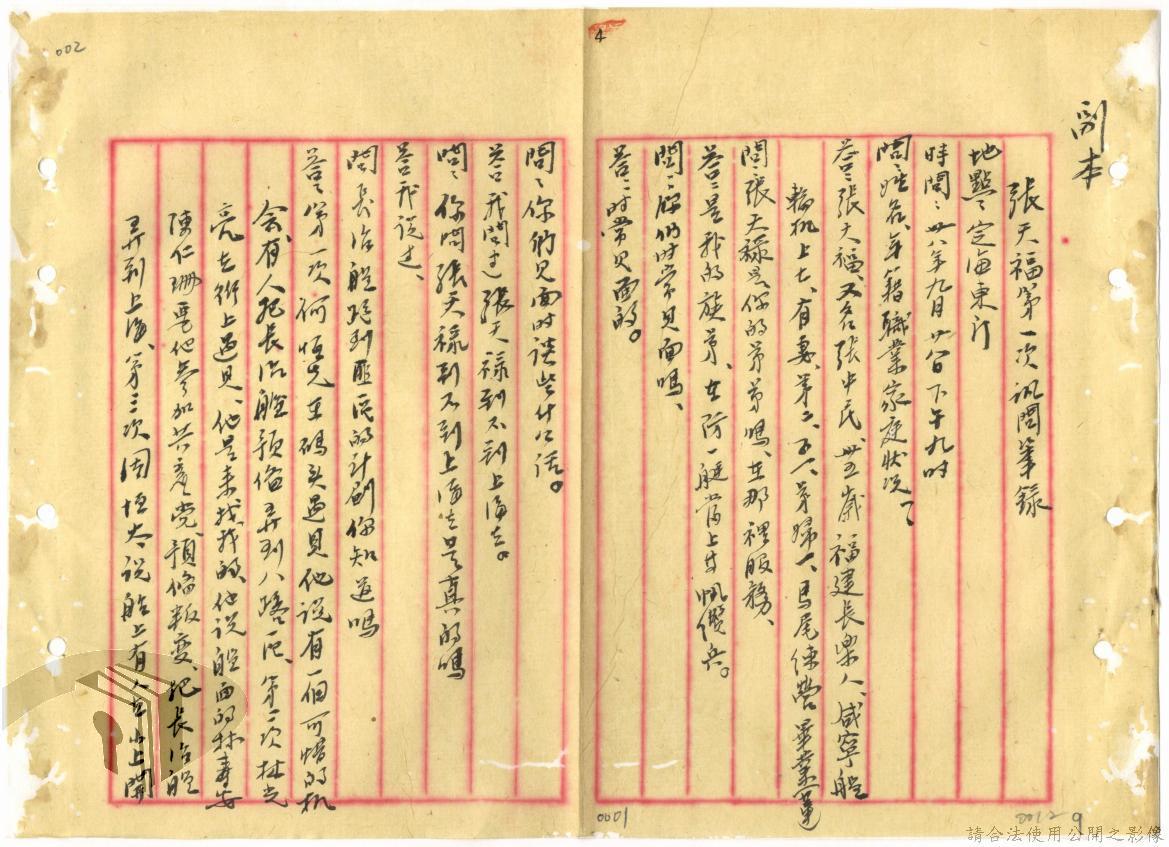 副本
張天福第一次訊問筆錄
地點：定海東汀
時間：卅八年九月廿一日下午九時
問：姓名、年籍職業家庭狀況？
答：張天福、又名張中民、卅五歲 福建長樂人、咸寧艦
輪机上士、有妻、弟二、子一、弟婦一、馬尾練營畢業
問：張天祿是你的弟弟嗎、在那裡服務、
答：是我的族弟、在防一艇當上等帆纜兵。
問：你們時常見面嗎、
答：時常見面的。
問：你們見面時談些什么話。
答：我問過張天祿到不到上海去。
問：你問張天祿到不到上海去是真的嗎
答：我說过、
問：長治艦跑到匪區的計劃你知道嗎
答：第一次何恒先在碼头遇見他說有一個可惜的机
会、有人把長治艦預俻弄到八路區、第二次林光
亮在街上遇見、他是来找我的、他說艦面的林壽安
陳仁珊要他參加共產党、預俻叛变、把長治艦
弄到上海、第三次因恒太說船上有人在上開
002
4
0001
0012
9
請合法使用公開之影像